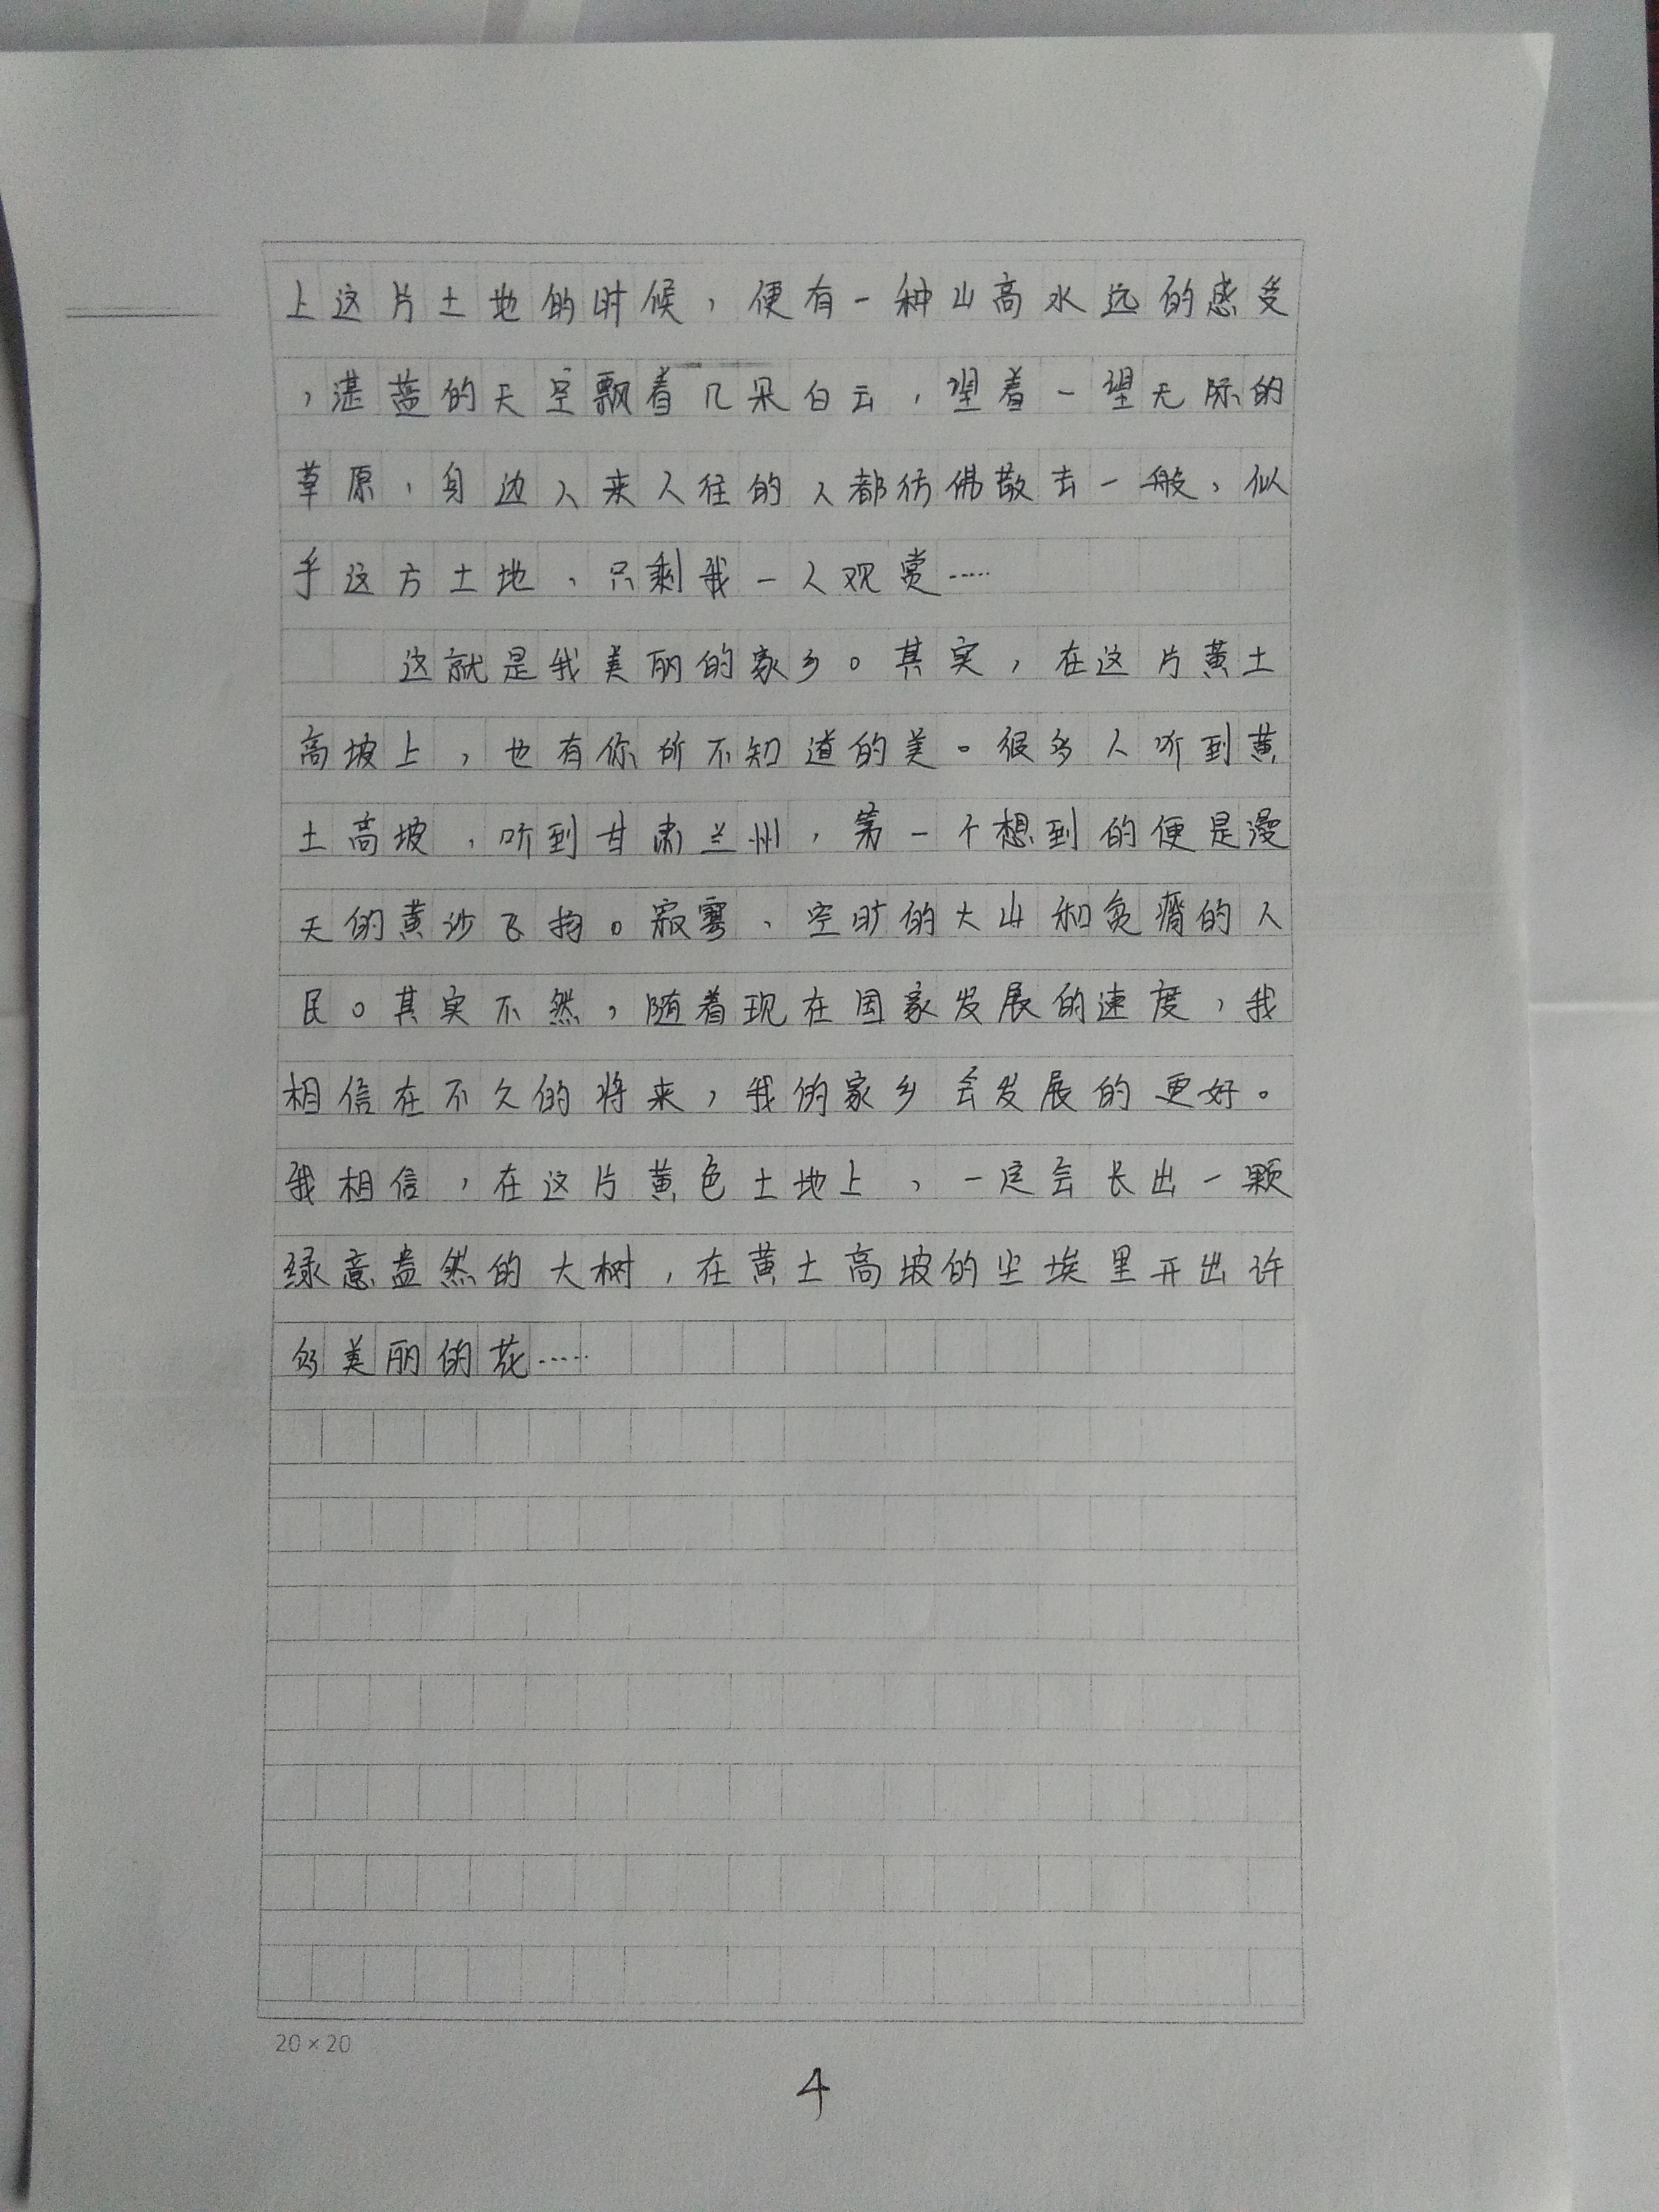 上这片土地的时候，便有一种山高水远的感受
，湛蓝的天空飘着几朵白云，望着一望无际的
草原，身边人来人往的人都仿佛散去一般，似
乎这方土地，只剩我一人观赏……
这就是我美丽的家乡。其实，在这片黄土
高坡上，也有你所不知道的美。很多人听到黄
土高坡，听到甘肃兰州，第一个想到的便是漫
天的黄沙飞扬。寂寞、空旷的大山和贫瘠的人
民。其实不然，随着现在国家发展的速度，我
相信在不久的将来，我的家乡会发展的更好。
我相信，在这片黄色土地上，一定会长出一颗
绿意盎然的大树，在黄土高坡的尘埃里开出许
多美丽的花……
20×20
4